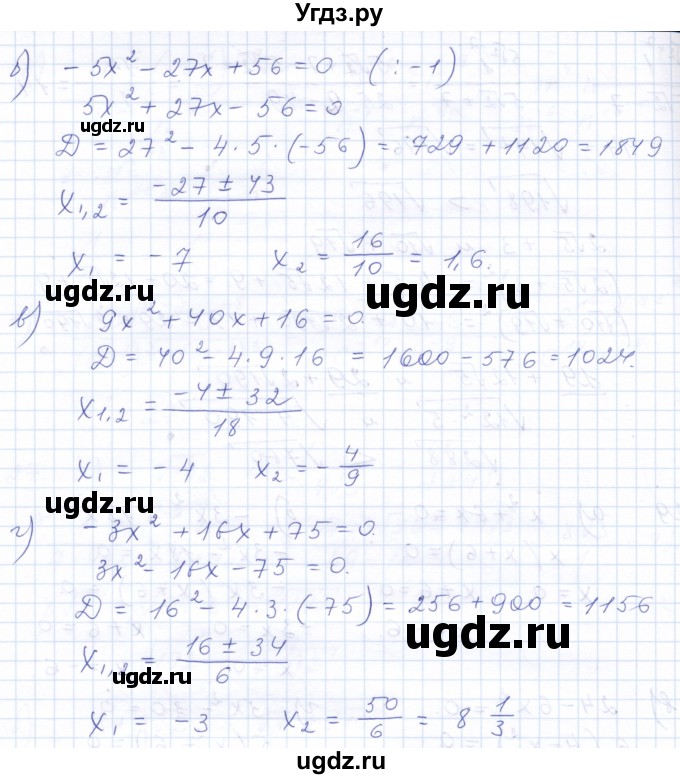 Угдз.ру
б) - 5x² - 27x + 56 = 0 (: -1)
5x² + 27x - 56 = 0
ugdz.ru
Д = 27² - 4·5·(-56) = 729 + 1120 = 1849
x₁,₂ = (-27 ± 43)/10
x₁ = - 7 x₂ = 16/10 = 1,6.
ugdz.ru ugdz.ru
в) 9x² + 40x + 16 = 0.
Д = 40² - 4·9·16 = 1600 - 576 = 1024.
ugdz.ru
x₁,₂ = (-4 ± 32)/18
x₁ = - 4 x₂ = - 4/9
ugdz.ru
г) - 3x² + 16x + 75 = 0.
3x² - 16x - 75 = 0.
ugdz.ru
Д = 16² - 4·3·(-75) = 256 + 900 = 1156
ugdz.ru
x₁,₂ = (16 ± 34)/6
ugdz.ru
x₁ = -3 x₂ = 50/6 = 8 1/3
ugdz.ru